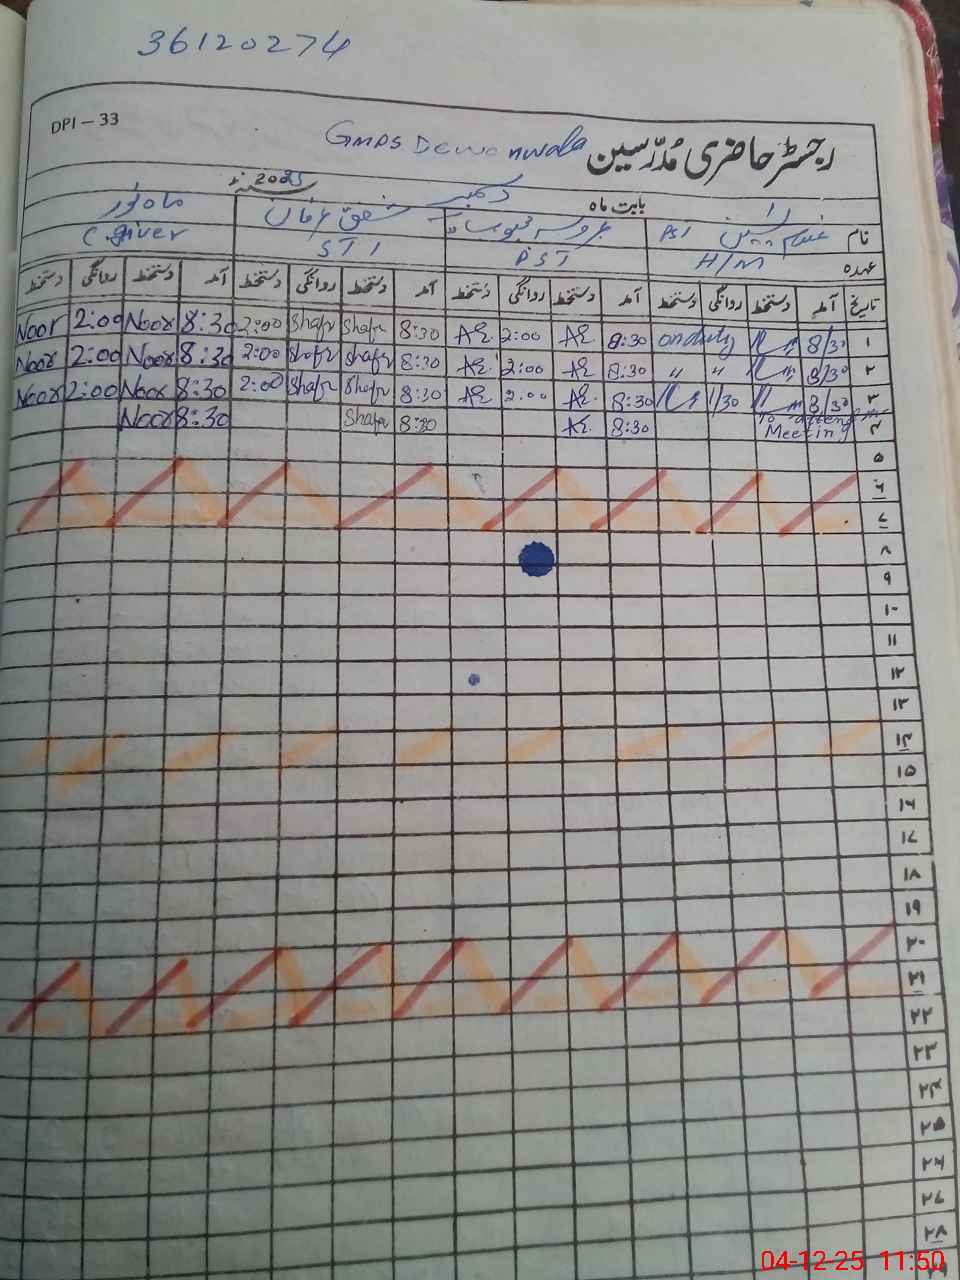 36120274
DPI – 33
GMPS Dewanwala رجسٹر حاضری مُدرّسین
بابت ماہ دسمبر 2025
نام PST عروسہ محبوب شفق عرفان ماہ نور
عہدہ H/M PST STI C.giver
تاریخ آمد دستخط روانگی دستخط آمد دستخط روانگی دستخط آمد دستخط روانگی دستخط آمد دستخط روانگی دستخط
۱ 8/30 on duty 8:30 2:00 8:30 Shafr Shafr 2:00 8:30 Noor 2:00 Noor
۲ 8/30 " " 8:30 2:00 8:30 Shafr Shafr 2:00 8:30 Noor 2:00 Noor
۳ 8/30 1/30 8:30 2:00 8:30 Shafr Shafr 2:00 8:30 Noor 2:00 Noor
۴ To attend Meeting 8:30 8:30 Shafr 8:30 Noor
۵
۶
۷
۸
۹
۱۰
۱۱
۱۲
۱۳
۱۴
۱۵
۱۶
۱۷
۱۸
۱۹
۲۰
۲۱
۲۲
۲۳
۲۴
۲۵
۲۶
۲۷
۲۸
۲۹
04-12-25 11:50